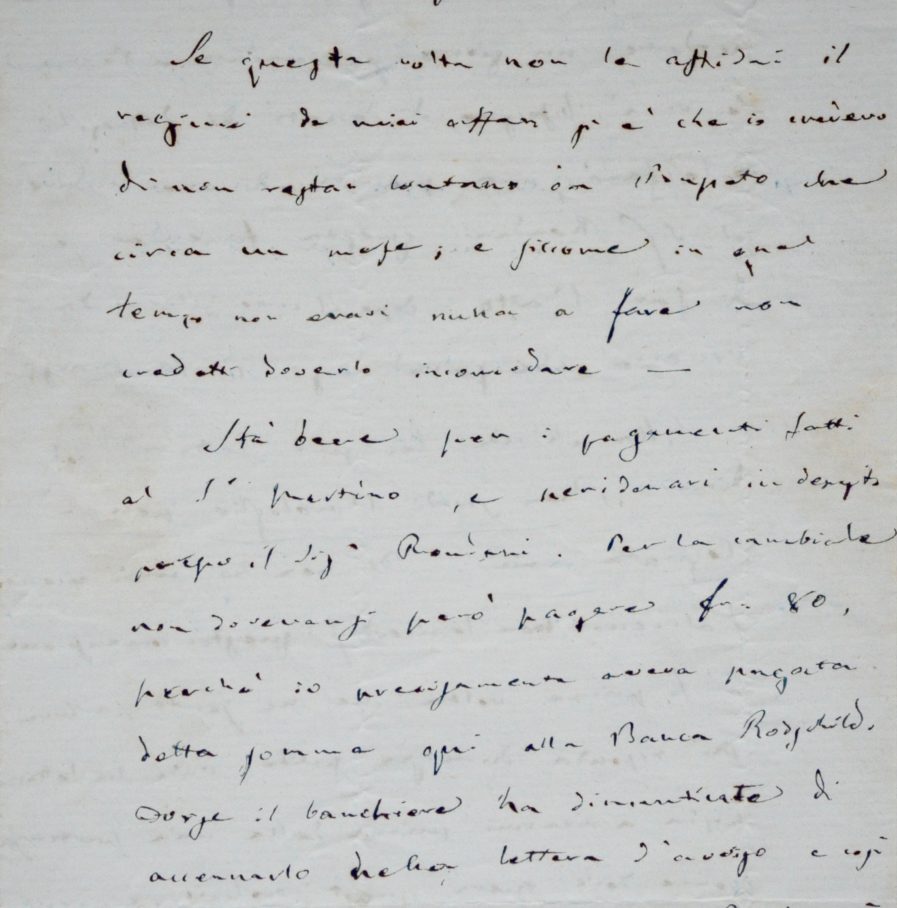 Se questa volta non le affidai il
regime de miei affari si è che io credevo
di non restar lontano da Busseto che
circa un mese; e siccome in quel
tempo non eravi nulla a fare non
credetti doverlo incomodare —
Stà bene per i pagamenti fatti
al S.r Martino, e residuari in deposito
presso il Sig.r . Per la cambiale
non dovevansi però pagare fr. 80,
perchè io precisamente aveva pagata
detta somma qui alla Banca Rodschild.
Forse il banchiere ha dimenticato di
accennarlo nella lettera d'avviso e così